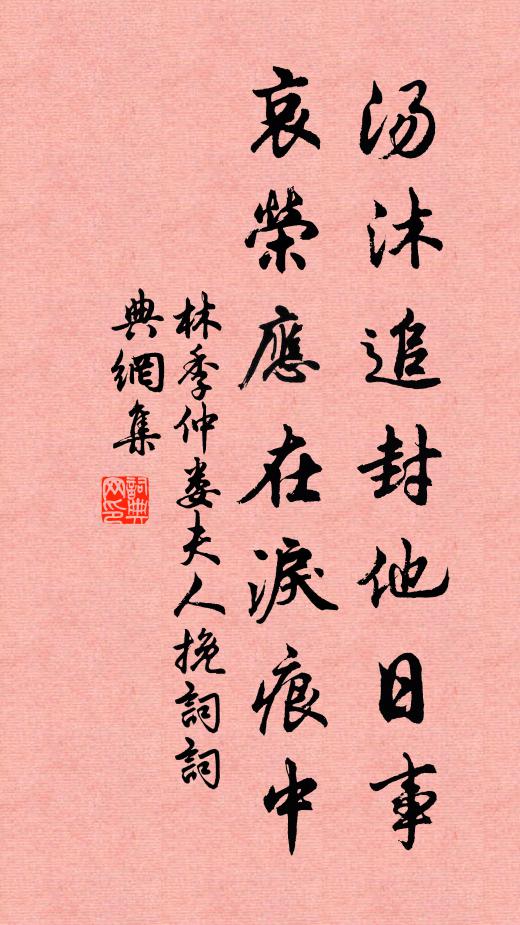 汤沐追封他日事
哀榮應在淚痕中
林季仲娄夫人挽詞詞
典網集
詞典网印